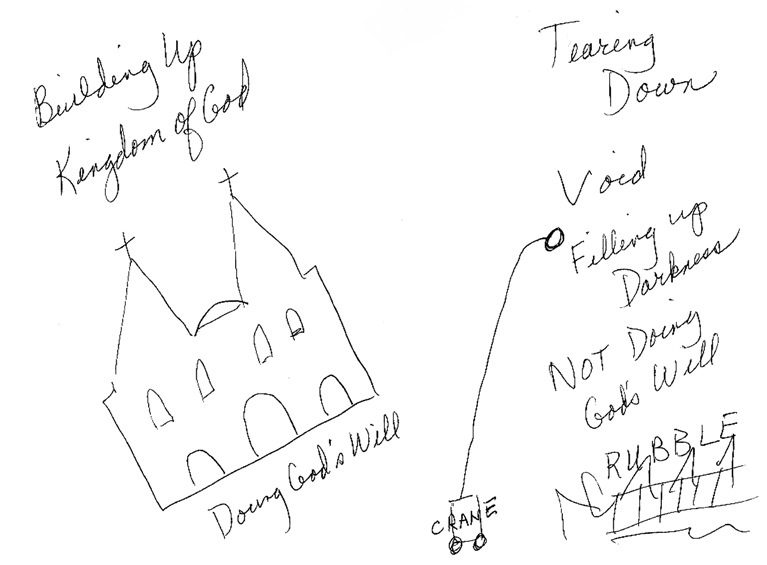 Building Up
Kingdom of God
Doing God's Will
Tearing
Down
Void
Filling up
Darkness
NOT Doing
God's Will
CRANE
RUBBLE